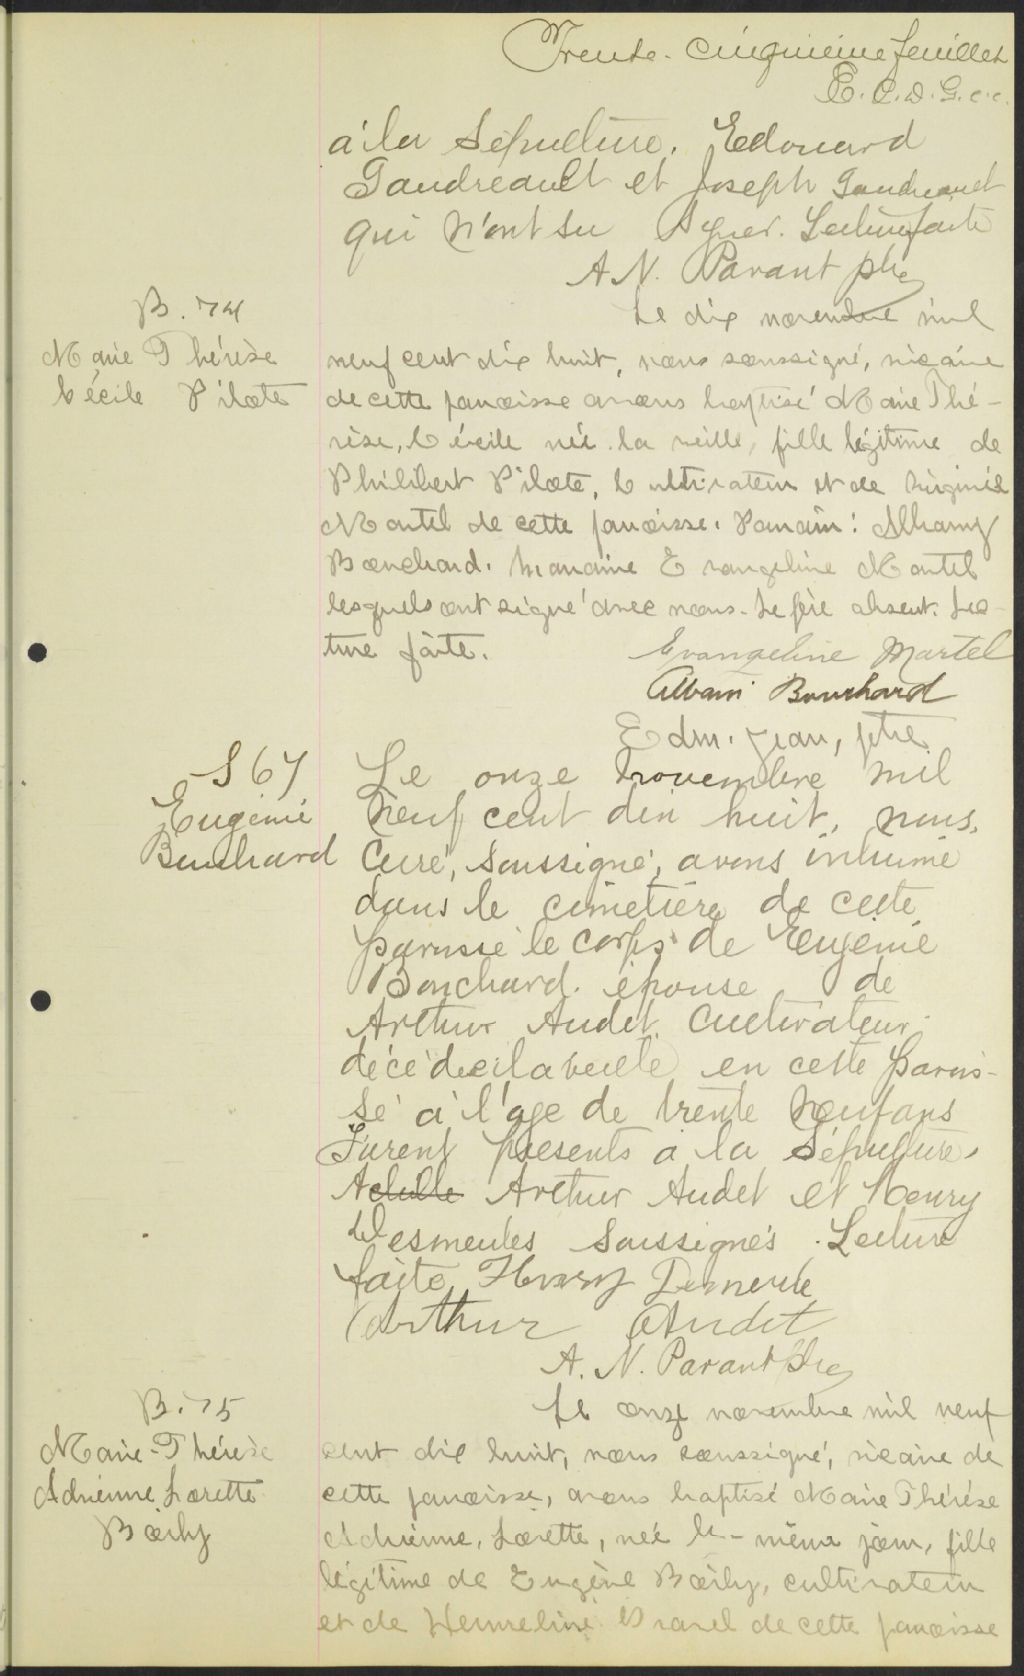 Trente-cinquième feuillet
E.C.D.G.c.c.
à la Sépulture. Edouard
Gaudreault et Joseph Gaudreault
qui n'ont su signer. Lecture faite
A. N. Parant ptre
B. 74
Marie Thérèse
Cécile Pilote
Le dix novembre mil
neuf cent dix huit, nous soussigné, vicaire
de cette paroisse avons baptisé Marie Thé-
rèse, Cécile née la veille, fille légitime de
Philibert Pilote, cultivateur et de Virginie
Martel de cette paroisse. Parrain:
Bouchard. Marraine Evangeline Martel
lesquels ont signé avec nous. Le père absent. Lec-
ture faite.
Evangeline Martel
Bouchard
Edm. Jean, ptre
S 67
Eugénie
Bouchard
Le onze novembre mil
neuf cent dix huit, nous,
Curé, soussigné, avons inhumé
dans le cimetière de cette
paroisse le corps de Eugénie
Bouchard. épouse de
Arthur Audet, cultivateur
décédée la veille en cette parois-
se à l'age de trente neuf ans
Furent présents à la Sépulture,
Achille Arthur Audet et Henry
Desmeules soussignés. Lecture
faite, Henry Demeule
Arthur Audet
A. N. Parant Ptre
B. 75
Marie-Thérèse
Adrienne Lorette
Boily
Le onze novembre mil neuf
cent dix huit, nous soussigné, vicaire de
cette paroisse, avons baptisé Marie Thérèse
Adrienne, Lorette, née le même jour, fille
légitime de Eugène Boily, cultivateur
et de de cette paroisse